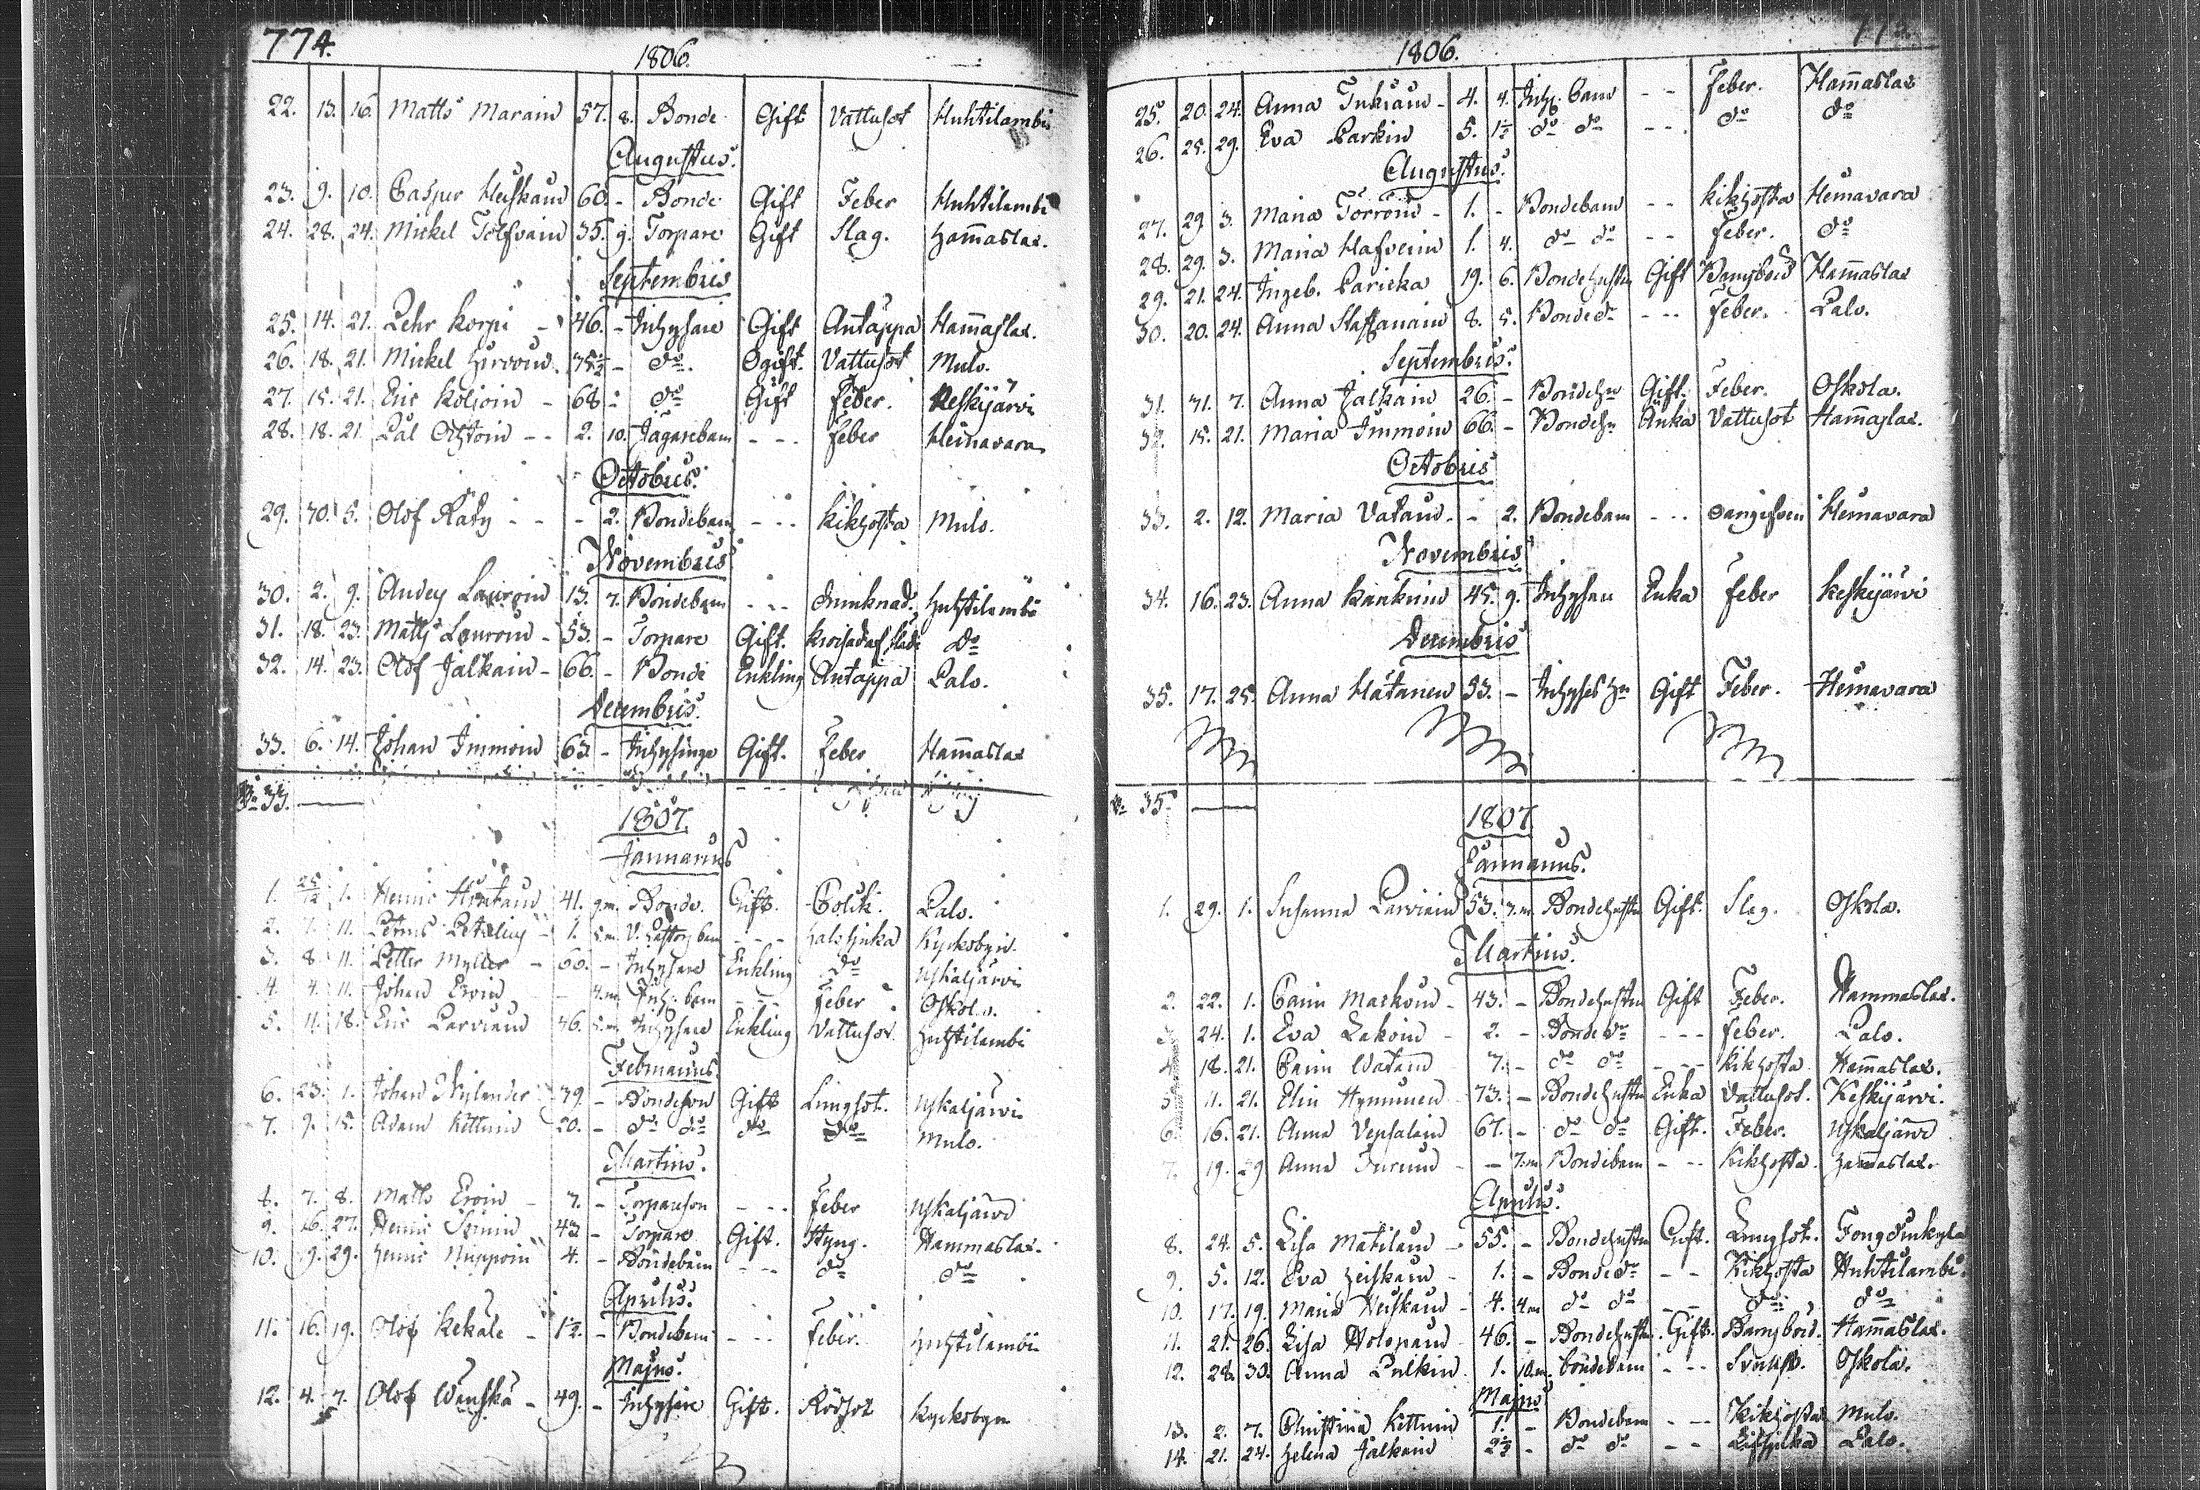 774.
1806.
22. 13. 16. Matts Marain 57. 8. Bonde Gift Vattusot Huhtilambi
Augustus.
23. 9. 10. Casper Heiskain 60. - Bonde Gift Feber Huhtilambi
24. 28. 24. Mickel Tolfvain 35. 9. Torpare Gift Slag. Hammaslax.
Septembris
25. 14. 21. Pehr Korpi - 46. - Inhysare Gift Antäppa Hammaslax.
26. 18. 21. Mickel Hirvoin 75½ - do. Ogift. Vattusot Mulo.
27. 15. 21. Eric Koljoin - 68 - do Gift Feber. Keskijärvi
28. 18. 21. Pål - - 2. 10. Jägarebarn - - - Feber Heinavara
Octobris.
29. 30. 5. Olof Räty - - - 2. Bondebarn - - - Kikhosta Mulo.
Novembris
30. 2. 9. Anders Lauroin 13. 7. Bondebarn - - - Drunknad. Huhtilambi
31. 18. 23. Matts Lauroin - 53. - Torpare Gift. do
32. 14. 23. Olof Jalkain - 66. - Bonde Enkling Antäppa Palo.
Decembris.
33. 6. 14. Johan Immoin 63. - Inhysinge Gift. Feber Hammaslax
33.
1807.
Januarius
1. 25/12 1. Henric Hirvain 41. 9m. Bonde. Gift. Colik. Palo.
2. 7. 11. Petrus Petelius - 1. 5m. V. Pastors barn - - - Halssjuka Kyrkobyn.
3. 8. 11. Petter Myller - 66. - Inhysare Enkling do Yskäljärvi
4. 4. 11. Johan Eroin - 4m. Inh. barn - - - Feber Oskola.
5. 11. 18. Eric Parviain 36. 5m. Inhysare Enkling Vattusot Huhtilambi
Februarius.
6. 23. 1. Johan Mylander 79. - Bondeson Gift Lungsot. Yskäljärvi
7. 9. 15. Adam Kettuin 20. - do do do do Mulo.
Martius.
8. 7. 8. Matts Eroin - 7. - Torpareson - - - Feber Yskäljärvi
9. 16. 27. Henric 43 - Torpare Gift. Styng. Hammaslax.
10. 9. 29. Henric Nuppoin 4. - Bondebarn - - - do do
Aprilis.
11. 16. 19. Olof Kekäle - 1½. - Bondebarn - - - Feber. Huhtilambi
Majus.
12. 4. 7. Olof Wenskä - 49. - Inhysare Gift. Rödsot Kyrkobyn
1806.
25. 20. 24. Anna Turuain - 4. 4. Inh. barn - - Feber. Hammaslax
26. 25. 29. Eva Parkin 5. 1½ do do - - - do do
Augustus.
27. 29. 3. Maria Torroin - 1. - Bondebarn - - Kikhosta Heinavara
28. 29. 3. Maria Hafverin 1. 4. do do - - Feber. do
29. 21. 24. Ingeb. Paricka 19. 6. Bondehustru Gift Barnsbörd Hammaslax
30. 20. 24. Anna Staffanain 8. 5. Bonde do - - - Feber. Palo.
Septembris.
31. 31. 7. Anna Jalkain 26. - Bondehu Gift. Feber. Oskola.
32. 15. 21. Maria Immoin 66. - Bondehu Änka Vattusot Hammaslax.
Octobris
33. 2. 12. Maria Vatain. - 2. Bondebarn - - - Heinavara
Novembris
34. 16. 23. Anna Karkuin 45. 9. Enka Feber Keskijärvi
Decembris
35. 17. 25. Anna Hätänen 53. - Gift Feber. Heinavara
35.
1807
Januarius.
1. 29. 1. Susanna Parviain 53. 3.m. Bondehustru Gift. Slag. Oskola.
Martius.
2. 22. 1. Carin Markoin - 43. - Bondehustru Gift Feber. Hammaslax.
3. 24. 1. Eva Lakoin - 2. - Bonde do - - - Feber. Palo.
4. 18. 21. Carin Watain 7. - do do - - - Kikhosta Hammaslax.
5. 11. 21. Elin Hynninen - 73. - Bondehustru Enka Vattusot. Keskijärvi.
6. 16. 21. Anna Vepsälain 67. - do do Gift. Feber. Yskäljärvi
7. 19. 29 Anna Turuin - - 7.m Bondebarn - - - Kikhosta. Hammaslax.
Aprilis.
8. 24. 5. Lisa Matilain - 55. - Bondehustru Gift. Lungsot.
9. 5. 12. Eva Heiskain - 1. - Bonde do - - Kikhosta Huhtilambi.
10. 17. 19. Maria Heiskain - 4. 4m do do - - do do
11. 21. 26. Lisa Holopain 46. - Bondehustru Gift. Barnsbörd. Hammaslax.
12. 28. 30. Anna Pulkin 1. 10.m. bondebarn - - - Oskola.
Majus
13. 2. 7. Christina Kettuin 1. - Bondebarn - - - Kikhosta Mulo.
14. 21. 24. Helena Jalkain 2½ - do do - - Palo.